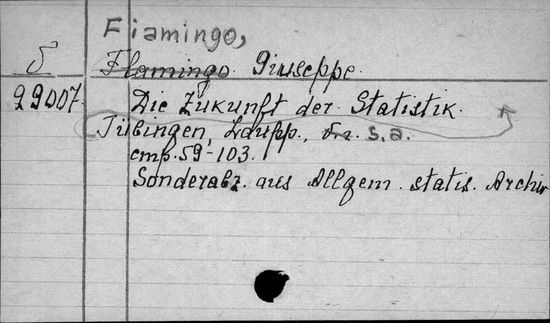 Fiamingo,
Flamingo Giuseppe.
29007. Die Zukunft der Statistik.
Tübingen, Laupp., s.a.
стр. 59-103.
Sonderabz. aus Allgem. statis. Archiv